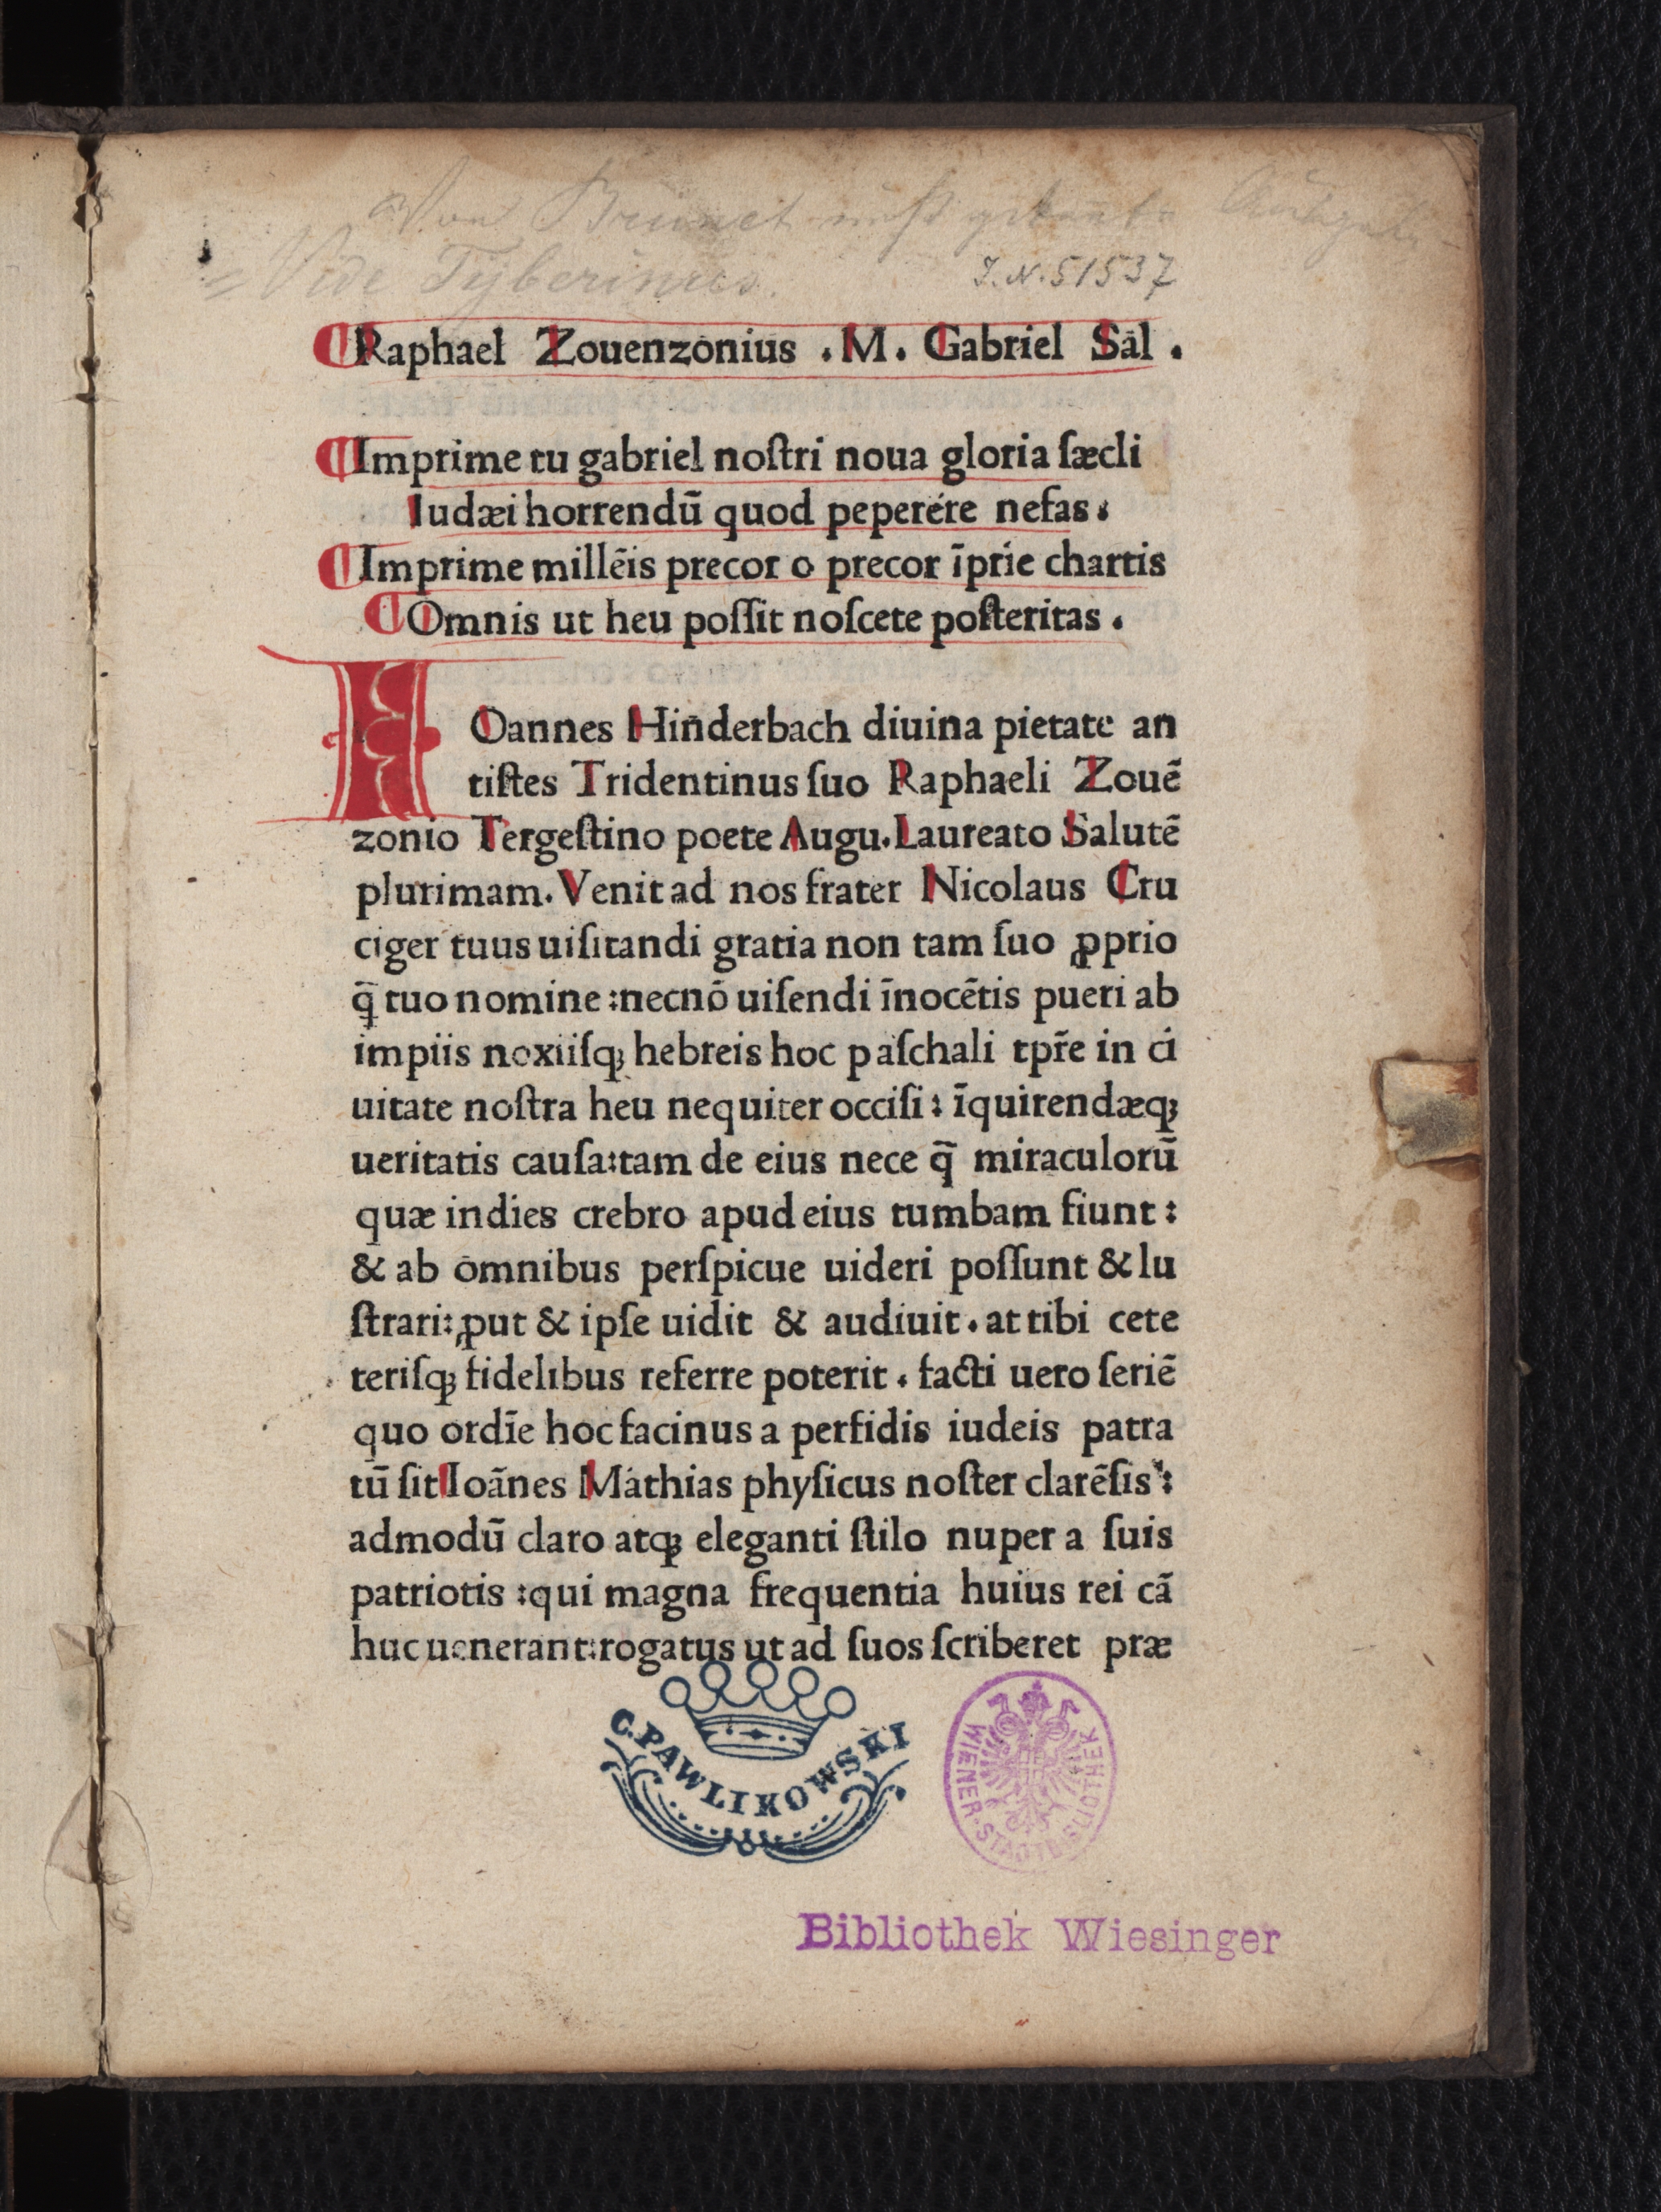 Von Brunet nicht gekannte Ausgabe
= Vide Tyberinus.
J.N.51537
Raphael Zouenzonius .M. Gabriel Sal̄ .
Imprime tu gabriel noſtri noua gloria ſæcli
Iudæi horrendū quod peperére nefas:
Imprime millēis precor o precor īprīe chartis
Omnis ut heu poſſit noſcete poſteritas .
IOannes Hinderbach diuina pietate an
tiſtes Tridentinus ſuo Raphaeli Zouē
zonio Tergeſtino poete Augu.Laureato Salutē
plurimam. Venit ad nos frater Nicolaus Cru
ciger tuus uiſitandi gratia non tam ſuo ꝓprio
q̄ tuo nomine :necnō uiſendi īnocētis pueri ab
impiis noxiiſqꝫ hebreis hoc paſchali tpr̄e in ci
uitate noſtra heu nequiter occiſi: īquirendæqꝫ
ueritatis cauſa:tam de eius nece q̄ miraculorū
quæ indies crebro apud eius tumbam fiunt:
& ab omnibus perſpicue uideri poſſunt & lu
ſtrari:ꝓut & ipſe uidit & audiuit. at tibi cete
teriſqꝫ fidelibus referre poterit . facti uero ſeriē
quo ordīe hoc facinus a perfidis iudeis patra
tū ſit Ioānes Mathias phyſicus noſter clarēſis:
admodū claro atqꝫ eleganti ſtilo nuper a ſuis
patriotis :qui magna frequentia huius rei cā
huc uenerant:rogatus ut ad ſuos ſcriberet præ
C.PAWLIKOWSKI
WIENER·STADTBIBLIOTHEK
Bibliothek Wiesinger